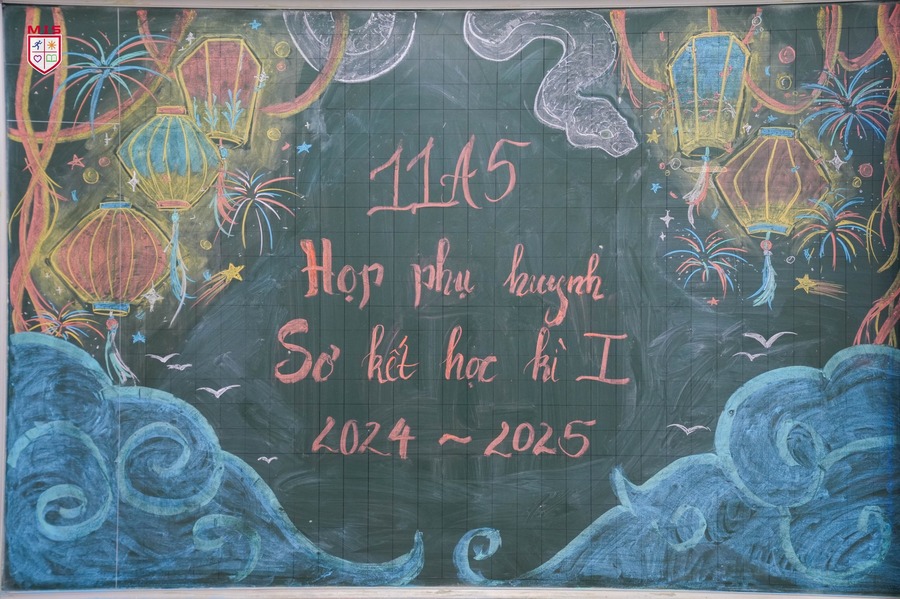 M.I.S
11A5
Họp phụ huynh
Sơ kết học kì I
2024 ~ 2025